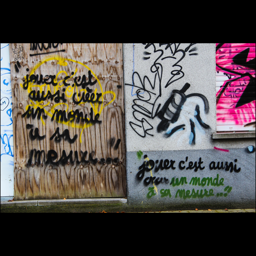 "jouer c'est
aussi créer
un monde
à sa
mesure...."
"jouer c'est aussi
créer un monde
à sa mesure..."